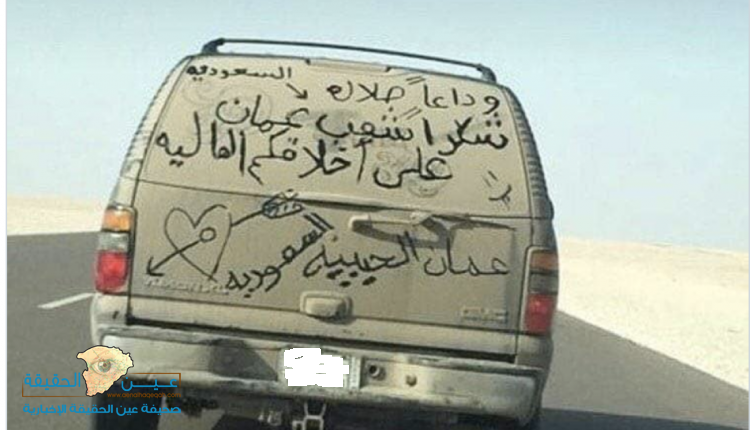 وداعاً صلاله السعوديه
شكرا شعب عمان
على أخلاقكم العاليه
عمان الحبيبة السعوديه
GMC
عين الحقيقة
صحيفة عين الحقيقة الإخبارية